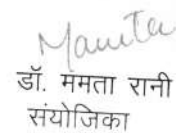 Mamta
डॉ. ममता रानी
संयोजिका